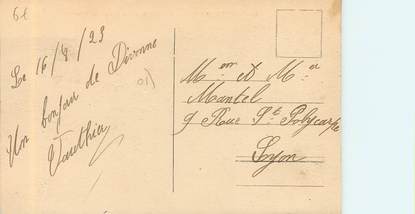 61
Le 16/8/23
Un bonjour de Divonne
Vauthier
Mr et Mme
Mantel
9 Rue St Polycarpe
Lyon